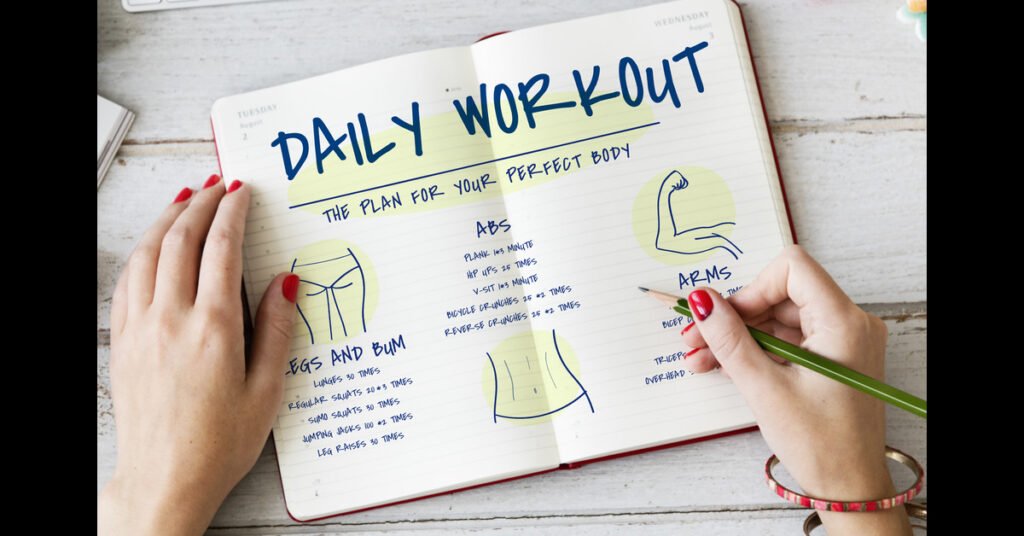 TUESDAY
August
2
WEDNESDAY
August
3
DAILY WORKOUT
THE PLAN FOR YOUR PERFECT BODY
LEGS AND BUM
LUNGES 30 TIMES
REGULAR SQUATS 20 *3 TIMES
SUMO SQUATS 30 TIMES
JUMPING JACKS 100 *2 TIMES
LEG RAISES 30 TIMES
ABS
PLANK 1*3 MINUTE
HIP UPS 25 TIMES
V-SIT 1*3 MINUTE
BICYCLE CRUNCHES 25 *2 TIMES
REVERSE CRUNCHES 25 *2 TIMES
ARMS
TIMES
BICEP
TRICEPS
OVERHEAD